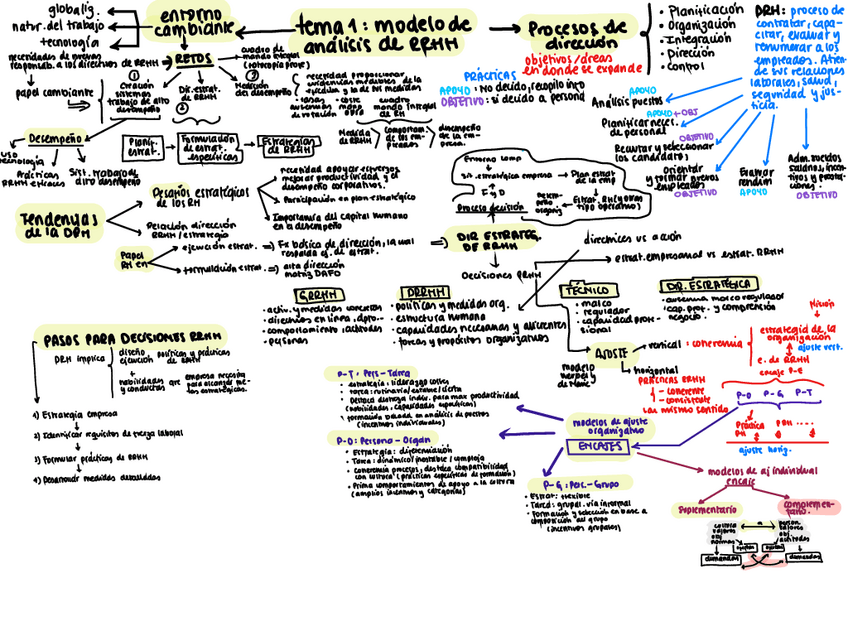 globaliz.
natur. del trabajo
tecnología
entorno
cambiante
tema 1: modelo de
análisis de RRHH
Procesos de
dirección
objetivos/áreas
en donde se expande
• Planificación
• Organización
• Integración
• Dirección
• Control
DRH: proceso de
contratar, capa-
citar, evaluar y
remunerar a los
empleados. Atien-
de sus relaciones
laborales, salud,
seguridad y jus-
ticia.
necesidades de nuevas
responsab. a los directivos de RRHH
RETOS
papel cambiante
①
Creación
sistemas
trabajo de alto
desempeño
Dir. estrat.
de RRHH
②
Medición
del desempeño
cuadro de
mando integral
necesidad proporcionar
mando integral
de RH
Medida
RRHH
desempeño
de la em-
presa.
PRÁCTICAS
APOYO: No decido, recopilo info
OBJETIVO: sí decido a persona
APOYO
Análisis puestos
APOYO + OBJ
Planificar neces.
de personal
OBJETIVO
Reclutar y seleccionar
los candidatos
Orientar
y formar nuevos
empleados
OBJETIVO
Evaluar
rendim
APOYO
Adm. sueldos
salarios, incen-
tivos y prestac-
iones.
OBJETIVO
Desempeño
uso
tecnología
Prácticas
RRHH eficaces
Sist. trabajo de
alto desempeño
Planif.
estrat.
Formulación
de estrat.
específicas
Estrategias
de RRHH
Tendencias
de la DRH
Desafíos estratégicos
de los RH
necesidad apoyar esfuerzos
mejorar productividad y el
desempeño corporativos.
Participación en plan estratégico
Importancia del capital humano
en el desempeño
Relación dirección
RRHH/estrategia
Papel
RH en
ejecución estrat. ⇒ Fx básica de dirección, la cual
respalda ej. de estrat.
formulación estrat. ⇒ alta dirección
matriz DAFO
Entorno comp
Sit. estratégica empresa → Plan estrat
de la emp
F y D
Proceso decisión
Desem-
peño
organiz
Estrat. RRHH (varias
tipo operativo)
⇒ DIR ESTRATEG.
DE RRHH
Decisiones RRHH
directrices vs acción
estrat. empresarial vs estrat. RRHH
GRRHH
• activ. y medidas concretas
• directivos en línea, dpto..
• comportamiento, actitudes
• personas
DRRHH
• políticas y medidas org.
• estructura humana
• capacidades necesarias y aferentes
• tareas y propósitos organizativos
TÉCNICO
• marco
regulador
• capacidad prof-
sional
DIR. ESTRATÉGICA
• ausencia marco regulador
• cap. prof. y comprensión
negocio.
AJUSTE
vertical: coherencia
horizontal
modelo
PRÁCTICAS RRHH
- coherente
- consistente
un mismo sentido
Misión
estrategia de la
organización
ajuste vert.
e. de RRHH
encaje P-E
P-O P-G P-T
Práctica
RH
PRH ....
ajuste horiz.
PASOS PARA DECISIONES RRHH
DRH implica
diseño
ejecución
políticas y prácticas
de RRHH
+
habilidades
y conductas
que
empresa necesita
para alcanzar me-
tas estratégicas.
1) Estrategia empresa
2) Identificar requisitos de fuerza laboral
3) Formular prácticas de RRHH
4) Desarrollar medidas detalladas
P-T: Pers-Tarea
• Estrategia: liderazgo costes
• Tarea: rutinaria/estable/cierta
• Destaca destreza indiv. para max productividad
(habilidades, capacidades específicas)
• Formación basada en análisis de puestos
(incentivos individuales)
P-O: Persona - Organ
• Estrategia: diferenciación
• Tarea: dinámica/inestable/compleja
• Coherencia procesos, destaca compatibilidad
con cultura (prácticas específicas de formación)
• Prima comportamientos de apoyo a la cultura
(amplios incentivos y categorías)
P-G: Pers.-Grupo
• Estrat: flexible
• Tarea: grupal, vía informal
• Formación y selección en base a
composición del grupo
(incentivos grupales)
modelos de ajuste
organizativo
ENCAJES
modelos de aj individual
encaje
Suplementario
complemen-
tario.
cultura
valores
obj
normas
person.
valores
obj.
actitudes
demandas
demandas